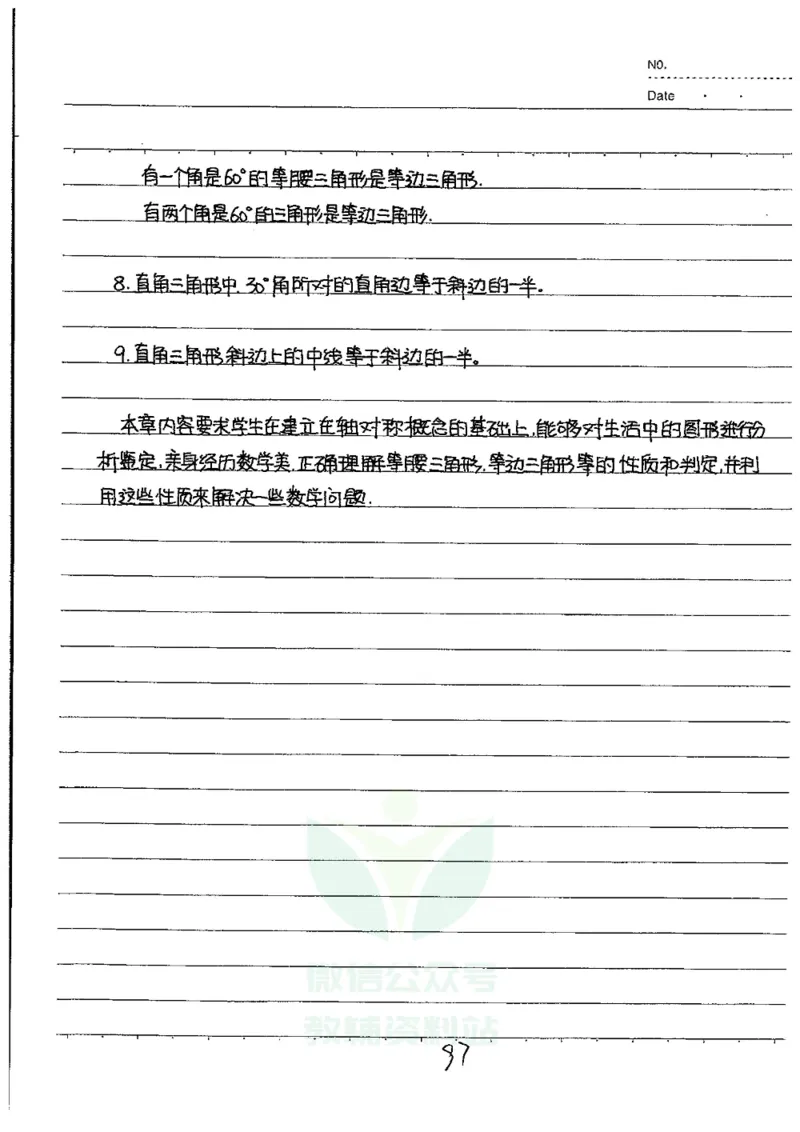 NO.
Date
有一个角是60°的等腰三角形是等边三角形.
有两个角是60°的三角形是等边三角形.
8.直角三角形中.30°角所对的直角边等于斜边的一半.
9.直角三角形斜边上的中线等于斜边的一半。
本章内容要求学生在建立在轴对称概念的基础上,能够对生活中的图形进行分
析鉴定,亲身经历数学美.正确理解等腰三角形,等边三角形等的性质和判定,并利
用这些性质来解决一些数学问题.
微信公众号
教辅资料站
97